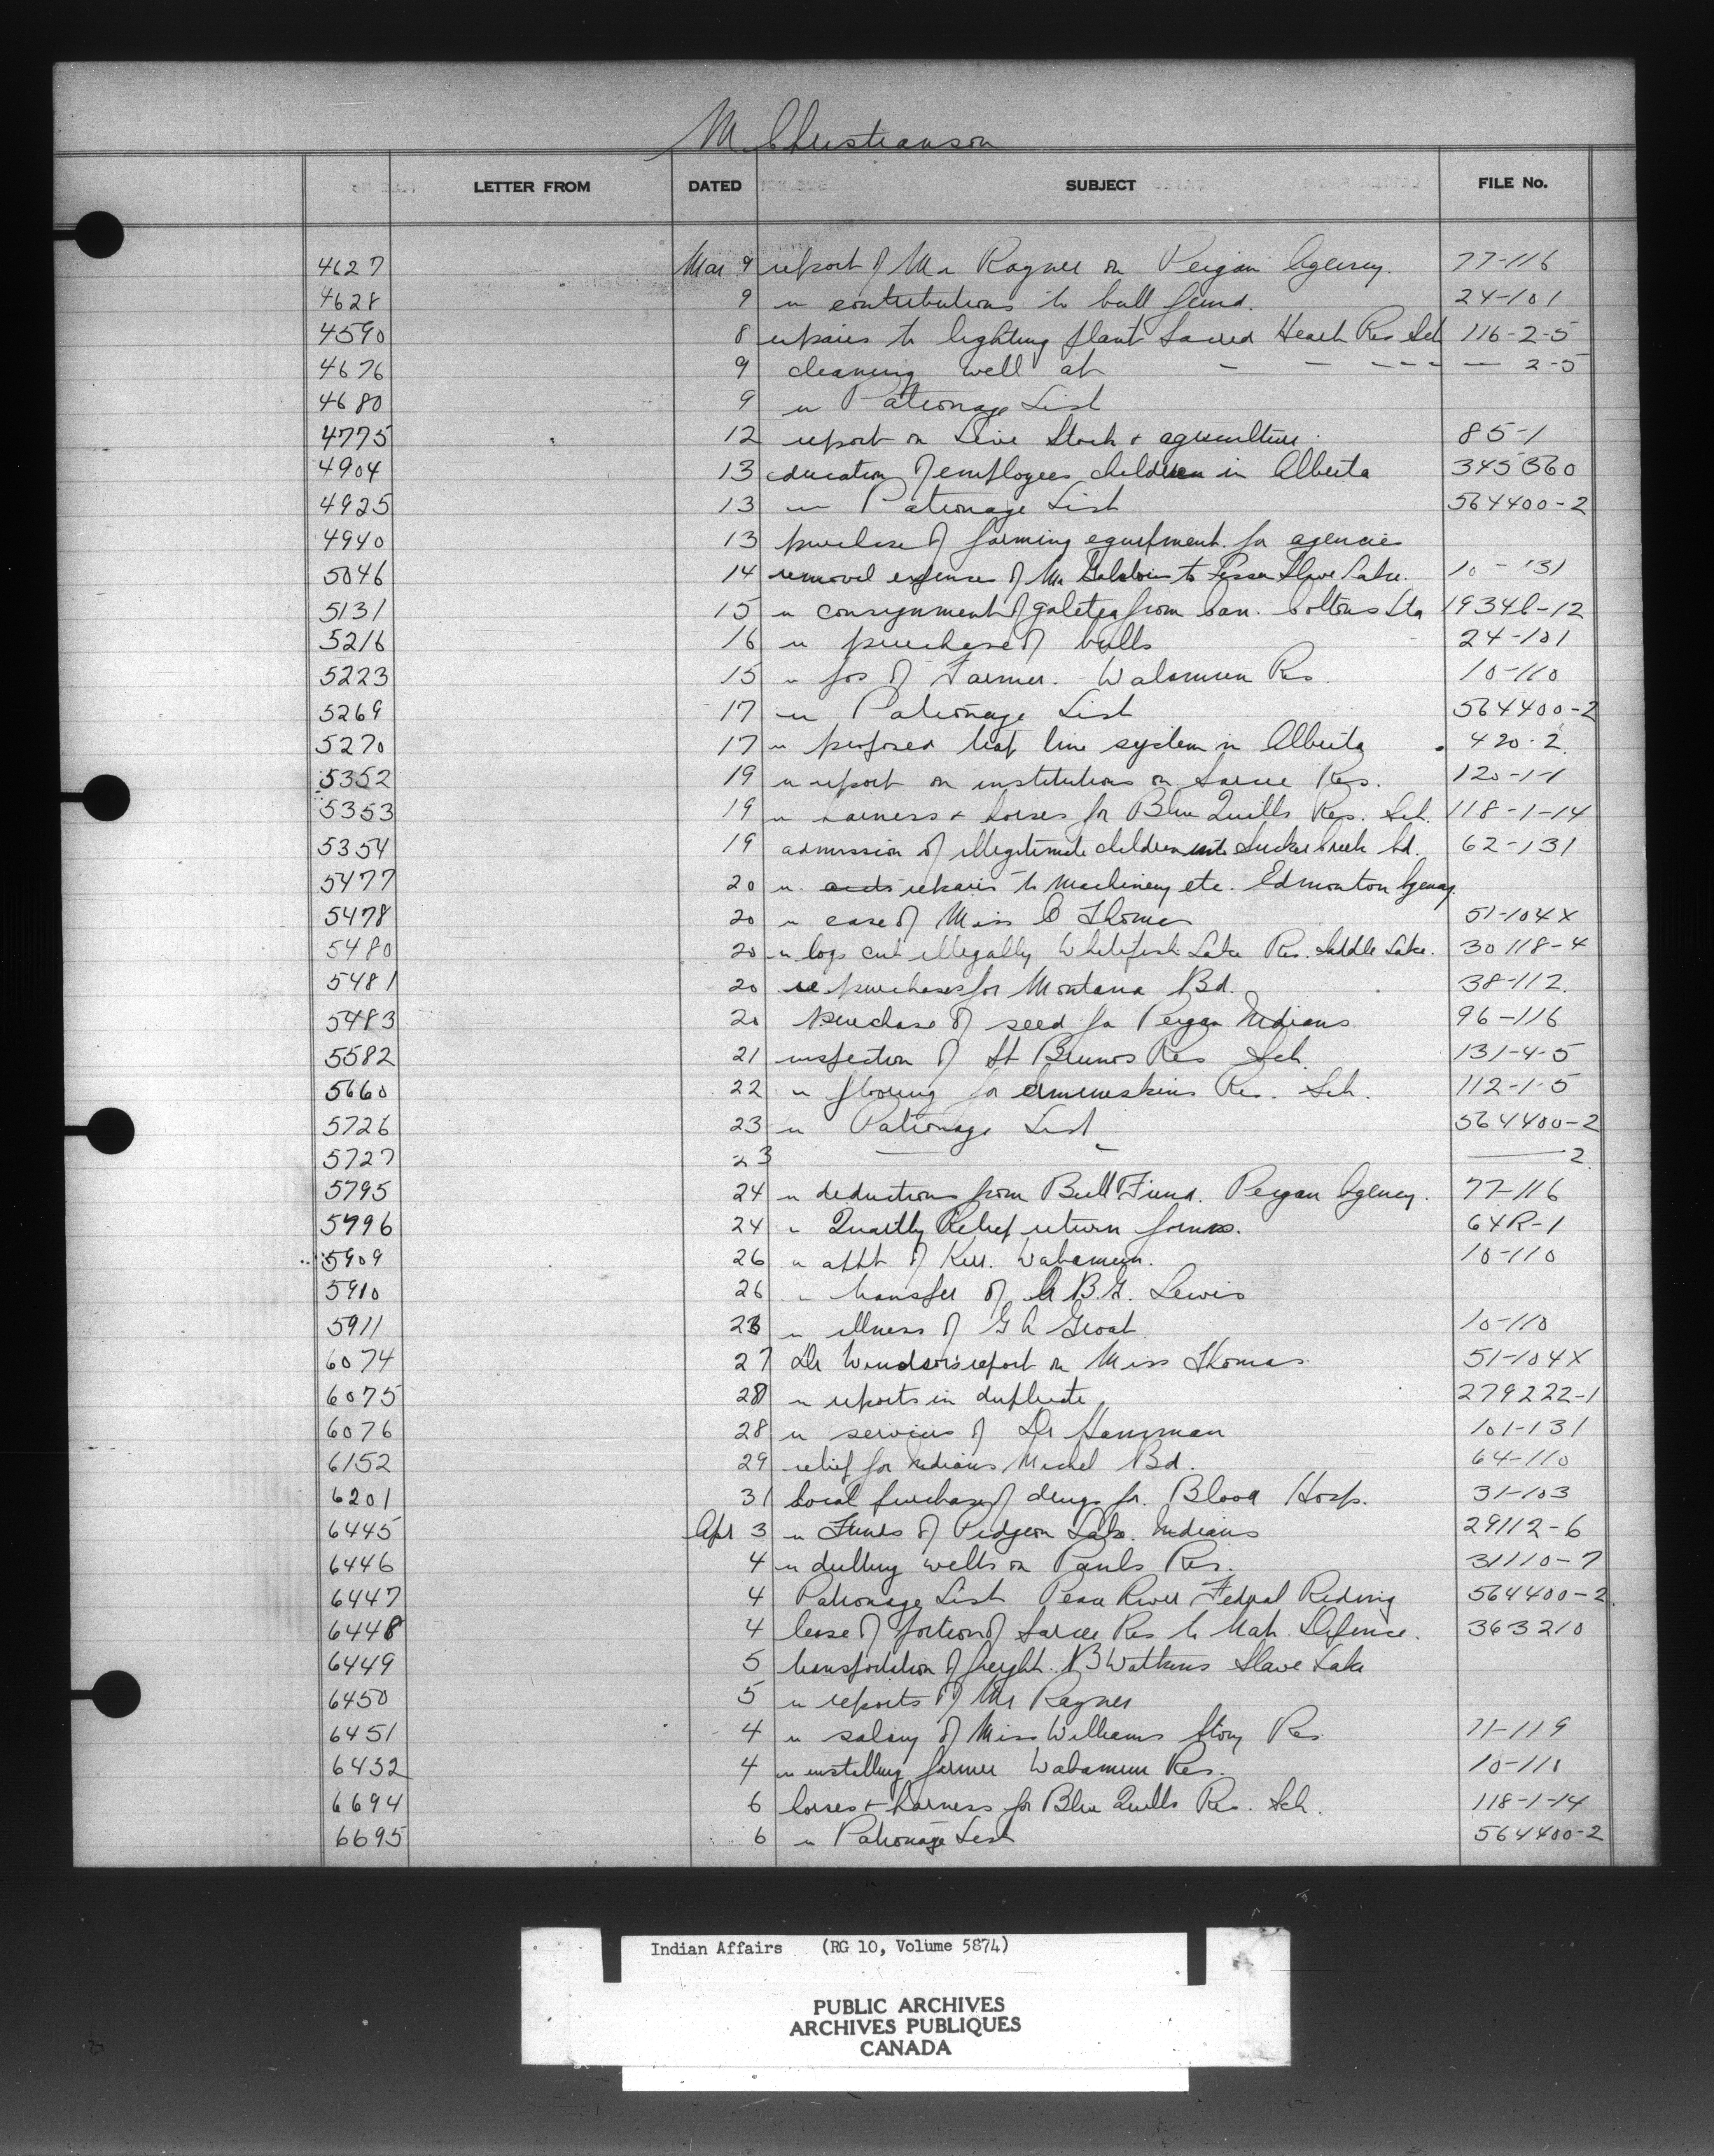 M. Christianson
LETTER FROM DATED SUBJECT FILE No.
4627 Mar 9 report of Mr Rayner on Peigan Agency. 77-116
4628 9 re contributions to bull fund. 24-101
4590 8 repairs to lighting plant Sacred Heart Res Sch 116-2-5
4676 9 cleaning well at - - - - - — 2-5
4680 9 re Patronage List
4775 12 report on Live Stock & agriculture. 85-1
4904 13 education of employees children in Alberta 345560
4925 13 re Patronage List 564400-2
4940 13 purchase of farming equipment for agencies
5046 14 removal expenses of Mr to Lesser Slave Lake. 10-131
5131 15 re consignment of from Can. Cottons Ltd 19346-12
5216 16 re purchase of bulls 24-101
5223 15 re pos of Farmer. Wabamun Res. 10-110
5269 17 re Patronage List 564400-2
5270 17 re proposed trap line system in Alberta 420-2.
5352 19 re report on institutions on Sarcee Res. 120-1-1
5353 19 re harness & horses for Blue Quills Res. Sch. 118-1-14
5354 19 admission of illegitimate children into Sucker Creek bd. 62-131
5477 20 re. repairs to Machinery etc. Edmonton Agency.
5478 20 re case of Miss C Thomas 51-104X
5480 20 re logs cut illegally Whitefish Lake Res. Saddle Lake. 30118-4
5481 20 re purchases for Montana Bd. 38-112.
5483 20 purchase of seed for Peigan Indians 96-116
5582 21 inspection of St Brunos Res Sch. 131-4-5
5660 22 re flooring for Ermineskins Res. Sch. 112-1-5
5726 23 re Patronage List 564400-2
5727 23 — - — 2
5795 24 re deductions from Bull Fund. Peigan Agency. 77-116
5796 24 re Quartly Relief return forms. 64R-1
5909 26 re appt of Kerr. Wabamun. 10-110
5910 26 re transfer of B.G. Lewis
5911 26 re illness of G A Groat. 10-110
6074 27 Dr Windsors report on Miss Thomas 51-104X
6075 28 re reports in duplicate 279222-1
6076 28 re services of Dr 101-131
6152 29 relief for Indians Michel Bd. 64-110
6201 31 Local purchase of drugs for. Blood Hosp. 31-103
6445 Apr 3 re Funds of Pidgeon Lake. Indians 29112-6
6446 4 re drilling wells on Pauls Res. 31110-7
6447 4 Patronage List Peace River Federal Riding 564400-2.
6448 4 lease of portion of Sarcee Res to Nat. Defence. 363210
6449 5 transportation of freight. B Watkins Slave Lake
6450 5 re reports of Mr Rayner
6451 4 re salary of Miss Williams Stony Res 11-119
6452 4 re installing farmer Wabamun Res. 10-110
6694 6 horses & harness for Blue Quills Res. Sch. 118-1-14
6695 6 re Patronage List 564400-2
Indian Affairs (RG 10, Volume 5874)
PUBLIC ARCHIVES
ARCHIVES PUBLIQUES
CANADA